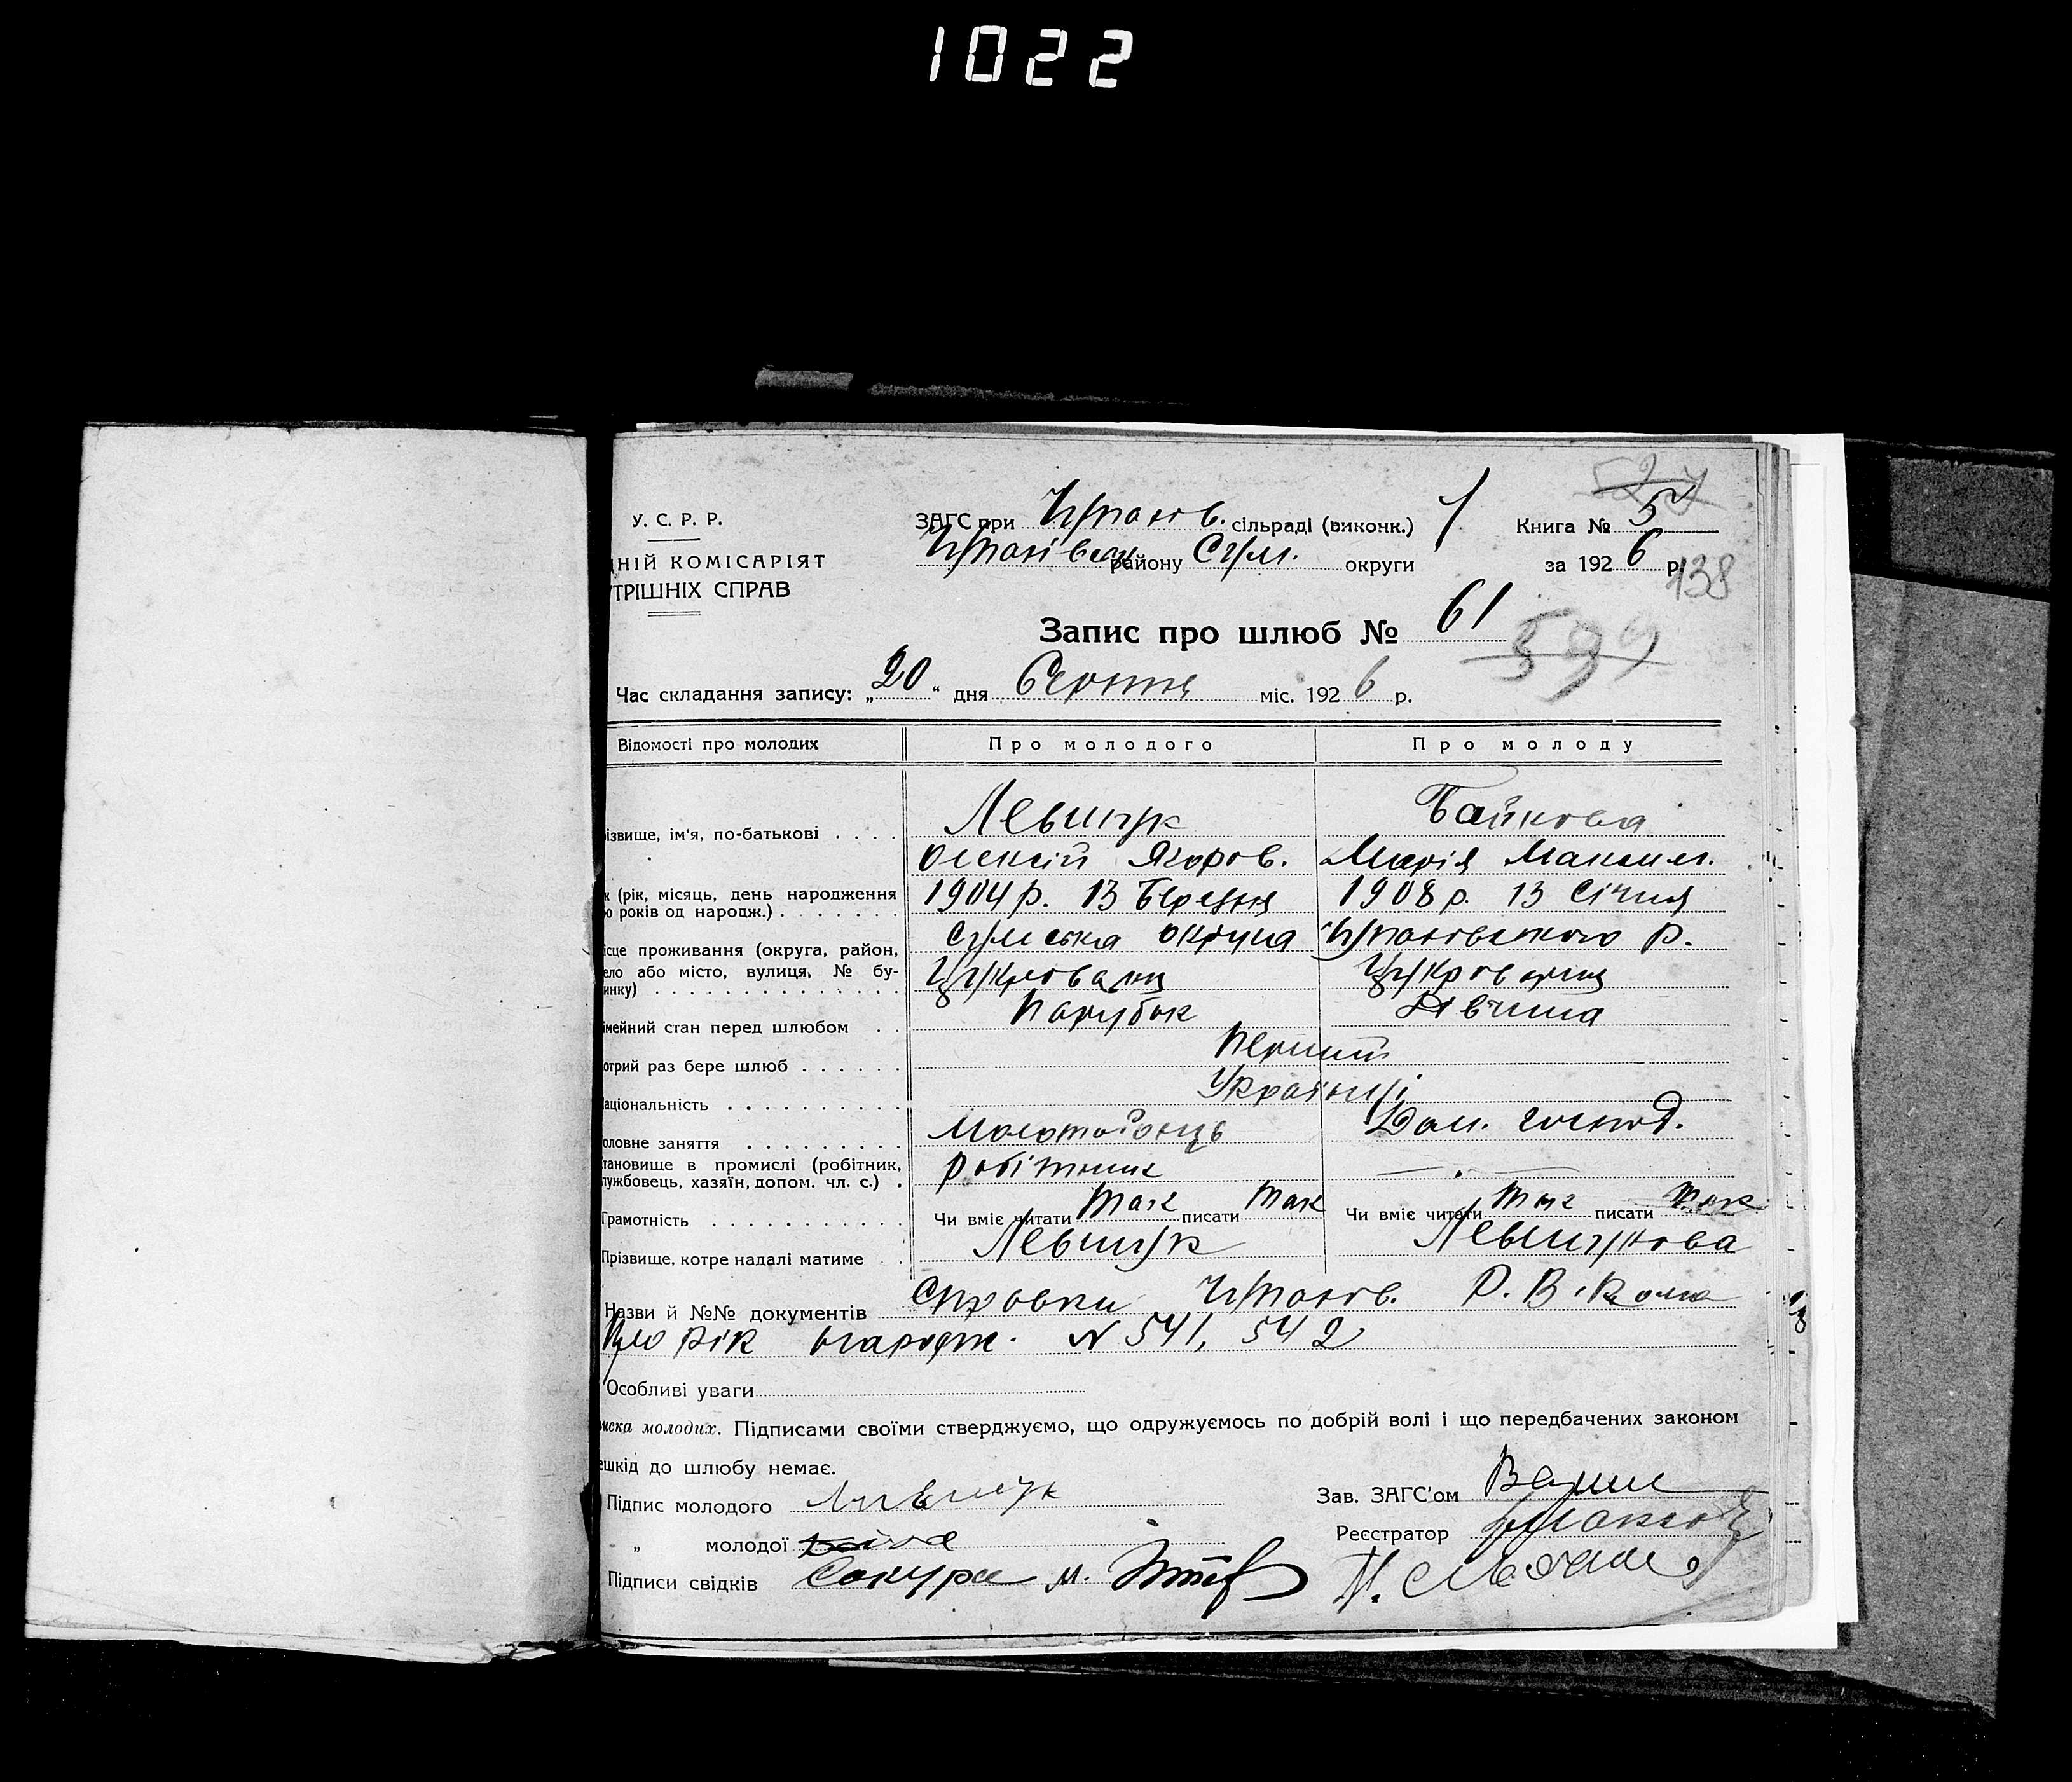 1022
527
У. С. Р. Р.
ЗАГС при Чупахів. сільраді (виконк.)
Книга № 5
НІЙ КОМІСАРІЯТ
району Сум. округи
за 1926 р.
138
ТРІШНІХ СПРАВ
Запис про шлюб № 61
599
Час складання запису: „20“ дня Серпня міс. 1926 р.
Відомості про молодих Про молодого Про молоду
ізвище, ім'я, по-батькові Левшук Байкова
Олексій Марія Максим.
к (рік, місяць, день народження 1904 р. 13 Березня 1908 р. 13 Січня
о років од народж.)
ісце проживання (округа, район, Сумська округа р.
ело або місто, вулиця, № бу- Цукроварня Цукроварня
инку)
імейний стан перед шлюбом Парубок Дівчина
отрий раз бере шлюб Перший
аціональність Українці
оловне заняття Молотобоєць Дом. господ.
тановище в промислі (робітник, робітник
лужбовець, хазяїн, допом. чл. с.)
Грамотність Чи вміє читати так писати так Чи вміє читати так писати так
Прізвище, котре надалі матиме Левшук Левшукова
Назви й №№ документів Справки Р. В. Кома
про рік народж. № 541, 542
Особливі уваги
иска молодих. Підписами своїми стверджуємо, що одружуємось по добрій волі і що передбачених законом
ешкід до шлюбу немає.
Підпис молодого Левшук Зав. ЗАГС'ом
„ молодої Реєстратор
Підписи свідків Сокура М.